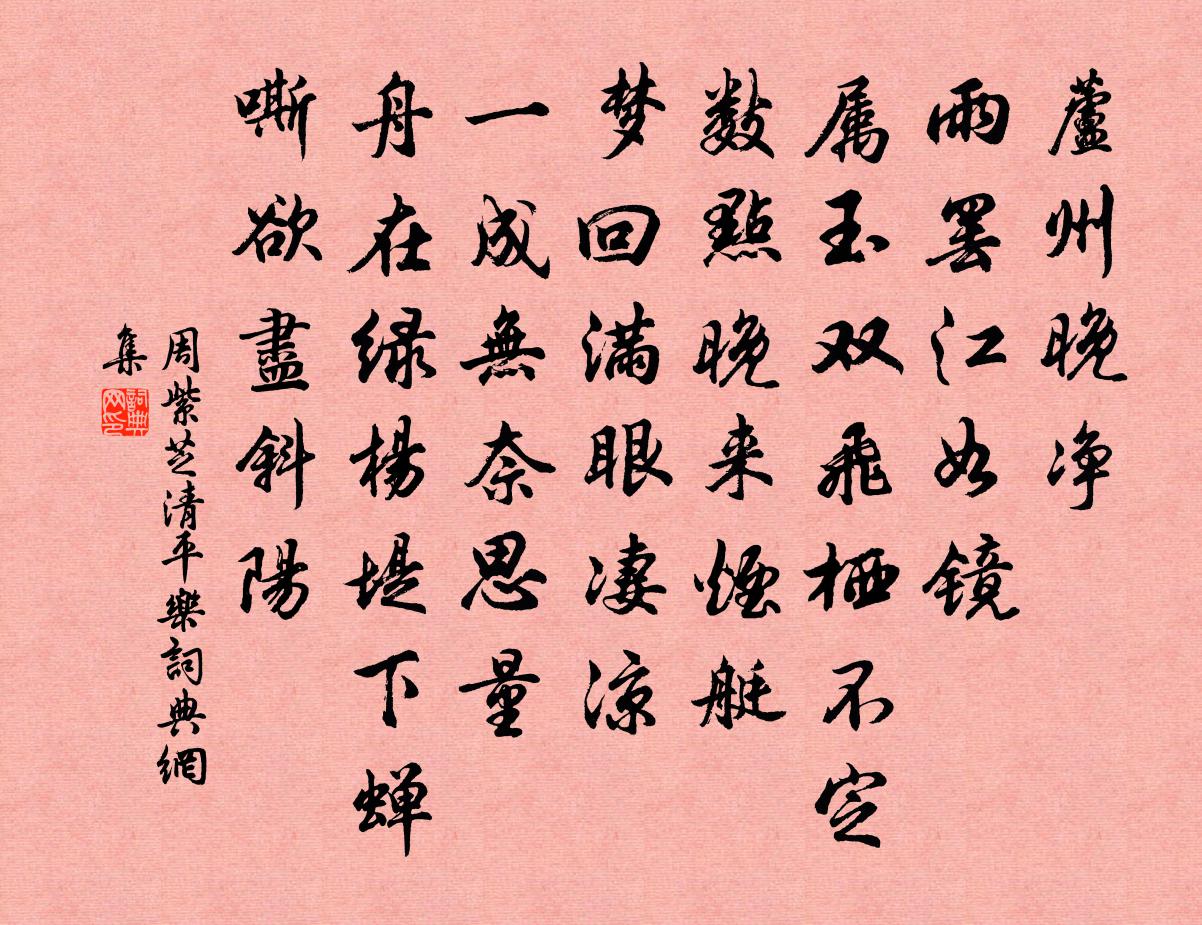 蘆州晚净
雨罢江如镜
属玉双飛栖不定
數點晚来煙艇
梦回满眼凄凉
一成無奈思量
舟在绿楊堤下蝉
嘶欲盡斜陽
周紫芝清平樂詞典網
集
詞典网印